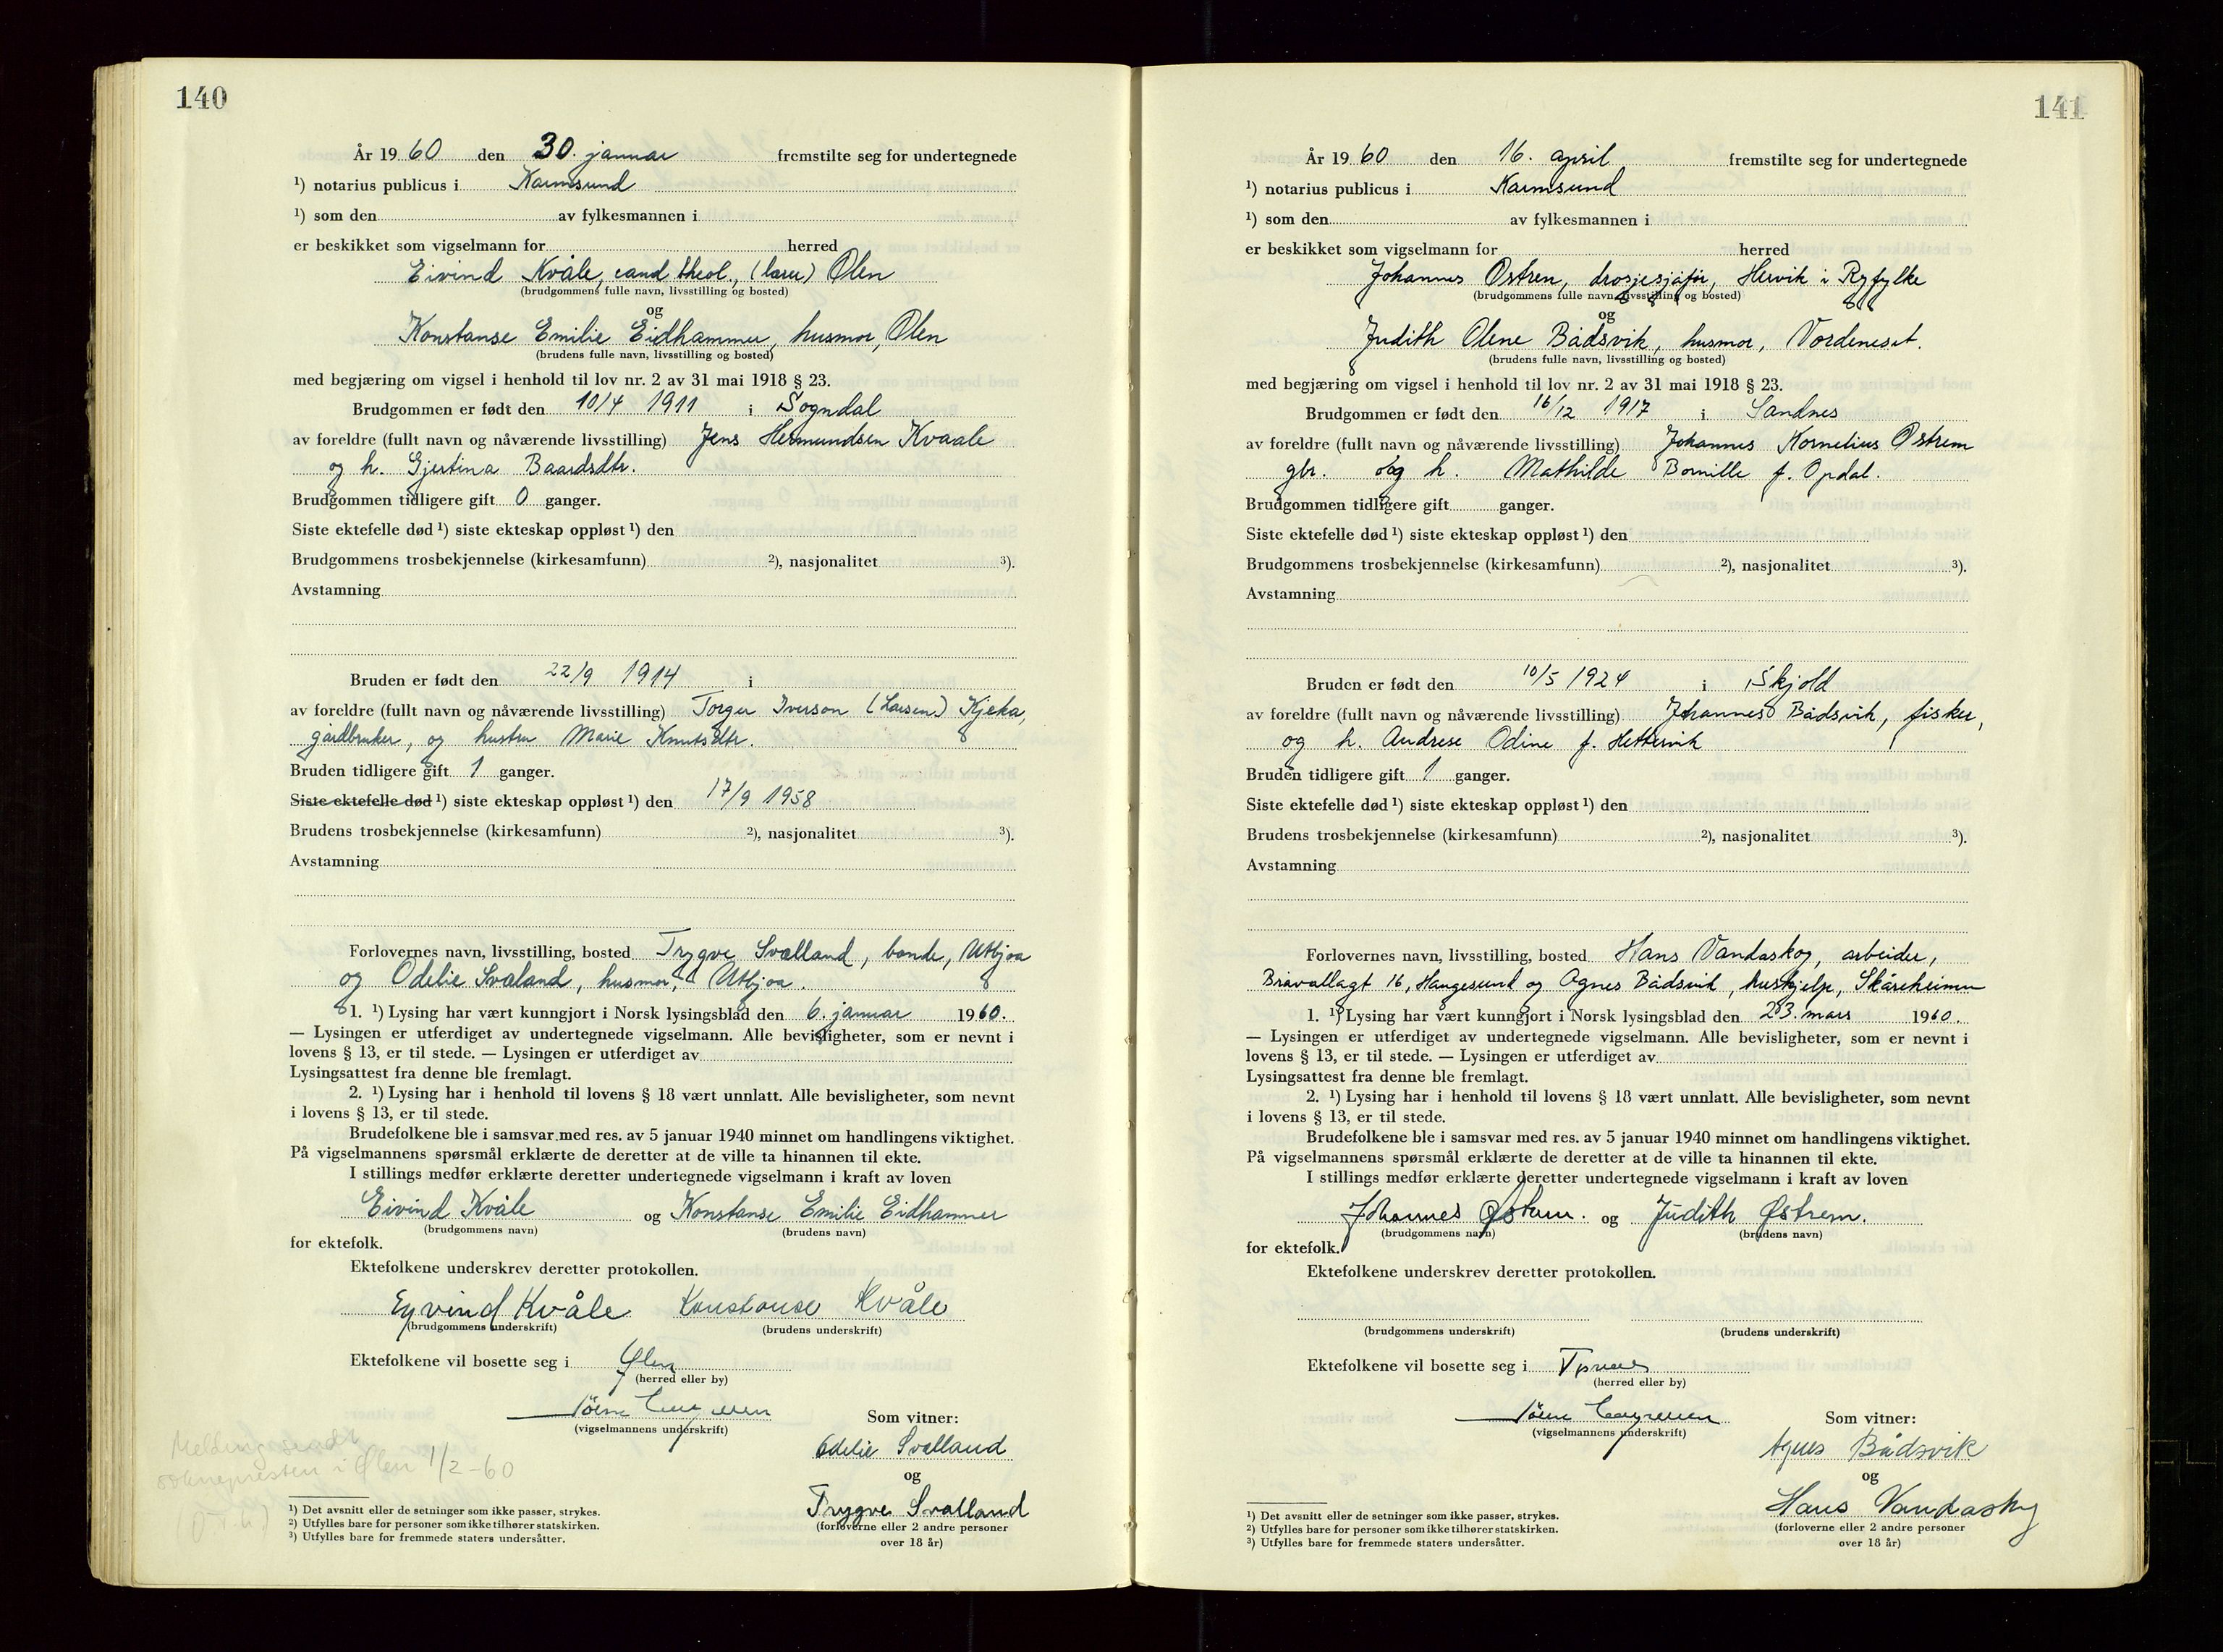 140
År 19 60 den 30. januar fremstilte seg for undertegnede
¹) notarius publicus i Karmsund
¹) som den av fylkesmannen i
er beskikket som vigselmann for herred
Eivind Kvåle, cand. theol., (lærer) Ølen
(brudgommens fulle navn, livsstilling og bosted)
og
Konstanse Emilie Eidhammer, husmor, Ølen
(brudens fulle navn, livsstilling og bosted)
med begjæring om vigsel i henhold til lov nr. 2 av 31 mai 1918 § 23.
Brudgommen er født den 10/4 1911 i Sogndal
av foreldre (fullt navn og nåværende livsstilling) Jens Hermundsen Kvaale
og h. Gjertina Baardsdtr.
Brudgommen tidligere gift 0 ganger.
Siste ektefelle død ¹) siste ekteskap oppløst ¹) den
Brudgommens trosbekjennelse (kirkesamfunn) ²), nasjonalitet ³).
Avstamning
Bruden er født den 22/9 1914 i
av foreldre (fullt navn og nåværende livsstilling) Torger Iverson (Larsen) Kjeka,
gårdbruker, og hustru Marie Knutsdtr.
Bruden tidligere gift 1 ganger.
Siste ektefelle død ¹) siste ekteskap oppløst ¹) den 17/9 1958
Brudens trosbekjennelse (kirkesamfunn) ²), nasjonalitet ³).
Avstamning
Forlovernes navn, livsstilling, bosted Trygve Svalland, bonde, Utbjoa
og Odelie Svaland, husmor, Utbjoa.
1. ¹) Lysing har vært kunngjort i Norsk lysingsblad den 6. januar 1960.
— Lysingen er utferdiget av undertegnede vigselmann. Alle bevisligheter, som er nevnt i
lovens § 13, er til stede. — Lysingen er utferdiget av
Lysingsattest fra denne ble fremlagt.
2. ¹) Lysing har i henhold til lovens § 18 vært unnlatt. Alle bevisligheter, som nevnt
i lovens § 13, er til stede.
Brudefolkene ble i samsvar med res. av 5 januar 1940 minnet om handlingens viktighet.
På vigselmannens spørsmål erklærte de deretter at de ville ta hinannen til ekte.
I stillings medfør erklærte deretter undertegnede vigselmann i kraft av loven
Eivind Kvåle og Konstanse Emilie Eidhammer
(brudgommens navn) (brudens navn)
for ektefolk.
Ektefolkene underskrev deretter protokollen.
Eyvind Kvåle Konstanse Kvåle
(brudgommens underskrift) (brudens underskrift)
Ektefolkene vil bosette seg i Ølen
(herred eller by)
(vigselmannens underskrift)
Som vitner:
Odelie Svalland
og
Trygve Svalland
(forloverne eller 2 andre personer
over 18 år)
Melding sendt
soknepresten i Ølen 1/2-60
¹) Det avsnitt eller de setninger som ikke passer, strykes.
²) Utfylles bare for personer som ikke tilhører statskirken.
³) Utfylles bare for fremmede staters undersåtter.
141
År 19 60 den 16. april fremstilte seg for undertegnede
¹) notarius publicus i Karmsund
¹) som den av fylkesmannen i
er beskikket som vigselmann for herred
Johannes Østren, drosjesjåfør, Hervik i Ryfylke
(brudgommens fulle navn, livsstilling og bosted)
og
Judith Olene Bådsvik, husmor, Vordeneset.
(brudens fulle navn, livsstilling og bosted)
med begjæring om vigsel i henhold til lov nr. 2 av 31 mai 1918 § 23.
Brudgommen er født den 16/12 1917 i Sandnes
av foreldre (fullt navn og nåværende livsstilling) Johannes Kornelius Østrem
gbr. og h. Mathilde Bornille f. Opdal.
Brudgommen tidligere gift ganger.
Siste ektefelle død ¹) siste ekteskap oppløst ¹) den
Brudgommens trosbekjennelse (kirkesamfunn) ²), nasjonalitet ³).
Avstamning
Bruden er født den 10/5 1924 i Skjold
av foreldre (fullt navn og nåværende livsstilling) Johannes Bådsvik, fisker,
og h. Andrese Odine f. Hettervik
Bruden tidligere gift 1 ganger.
Siste ektefelle død ¹) siste ekteskap oppløst ¹) den
Brudens trosbekjennelse (kirkesamfunn) ²), nasjonalitet ³).
Avstamning
Forlovernes navn, livsstilling, bosted Hans Vandaskog, arbeider,
Bråvallagt 16, Haugesund og Agnes Bådsvik, hushjelp, Skåreheimen
1. ¹) Lysing har vært kunngjort i Norsk lysingsblad den 23. mars 1960.
— Lysingen er utferdiget av undertegnede vigselmann. Alle bevisligheter, som er nevnt i
lovens § 13, er til stede. — Lysingen er utferdiget av
Lysingsattest fra denne ble fremlagt.
2. ¹) Lysing har i henhold til lovens § 18 vært unnlatt. Alle bevisligheter, som nevnt
i lovens § 13, er til stede.
Brudefolkene ble i samsvar med res. av 5 januar 1940 minnet om handlingens viktighet.
På vigselmannens spørsmål erklærte de deretter at de ville ta hinannen til ekte.
I stillings medfør erklærte deretter undertegnede vigselmann i kraft av loven
Johannes Østrem. og Judith Østrem.
(brudgommens navn) (brudens navn)
for ektefolk.
Ektefolkene underskrev deretter protokollen.
(brudgommens underskrift) (brudens underskrift)
Ektefolkene vil bosette seg i
(herred eller by)
(vigselmannens underskrift)
Som vitner:
Agnes Bådsvik
og
Hans Vandaskog
(forloverne eller 2 andre personer
over 18 år)
¹) Det avsnitt eller de setninger som ikke passer, strykes.
²) Utfylles bare for personer som ikke tilhører statskirken.
³) Utfylles bare for fremmede staters undersåtter.